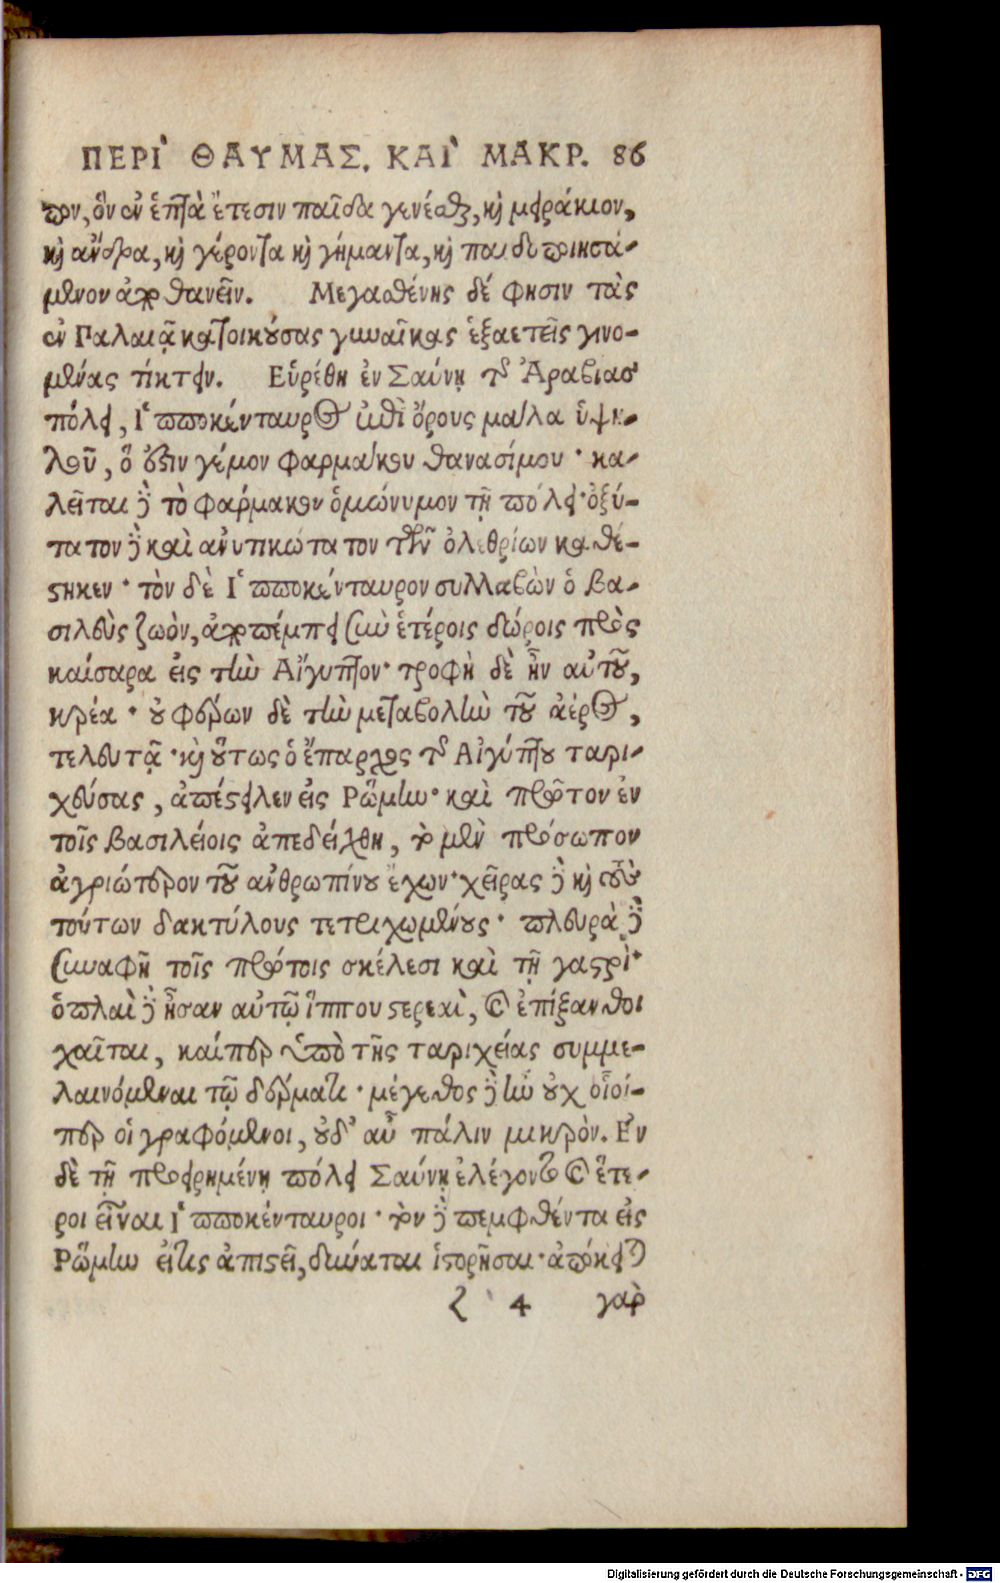 ΠΕΡῚ ΘΑΥΜΑΣ. ΚΑῚ ΜΑΚΡ. 86
πον, ὃν ἐν ἑπτὰ ἔτεσιν παῖδα γενέσθαι, καὶ μειράκιον,
καὶ ἄνδρα, καὶ γέροντα καὶ γήμαντα, καὶ παιδοποιησά-
μενον ἀποθανεῖν. Μεγασθένης δέ φησιν τὰς
ἐν Γαλαιᾷ κατοικούσας γυναῖκας ἑξαετεῖς γινο-
μένας τίκτειν. Εὑρέθη ἐν Σαύνῃ τῆς Ἀραβίας
πόλει, Ἱπποκένταυρος ἐπὶ ὄρους μάλα ὑψη-
λοῦ, ὅ ἐστιν γέμον φαρμάκου θανασίμου · κα-
λεῖται δὲ τὸ φάρμακον ὁμώνυμον τῇ πόλει · ὀξύ-
τατον δὲ καὶ ἀνυτικώτατον τῶν ὀλεθρίων καθέ-
στηκεν · τὸν δὲ Ἱπποκένταυρον συλλαβὼν ὁ βα-
σιλεὺς ζωὸν, ἀποπέμπει σὺν ἑτέροις δώροις πρὸς
καίσαρα εἰς τὴν Αἴγυπτον · τροφὴ δὲ ἦν αὐτοῦ,
κρέα · οὐ φέρων δὲ τὴν μεταβολὴν τοῦ ἀέρος,
τελευτᾷ · καὶ οὕτως ὁ ἔπαρχος τῆς Αἰγύπτου ταρι-
χεύσας, ἀπέστειλεν εἰς Ῥώμην · καὶ πρῶτον ἐν
τοῖς βασιλείοις ἀπεδείχθη, τὸ μὲν πρόσωπον
ἀγριώτερον τοῦ ἀνθρωπίνου ἔχων · χεῖρας δὲ καὶ τοὺς
τούτων δακτύλους τετριχωμένους · πλευρὰ δὲ
συναφῆ τοῖς πρώτοις σκέλεσι καὶ τῇ γαστρί ·
ὁπλαὶ δὲ ἦσαν αὐτῷ ἵππου στερεαὶ, καὶ ἐπίξανθοι
χαῖται, καίπερ ὑπὸ τῆς ταριχείας συμμε-
λαινόμεναι τῷ δέρματι · μέγεθος δὲ ἦν οὐχ οἷοί-
περ οἱ γραφόμενοι, οὐδ' αὖ πάλιν μικρὸν. Ἐν
δὲ τῇ προειρημένῃ πόλει Σαύνῃ ἐλέγοντο καὶ ἕτε-
ροι εἶναι Ἱπποκένταυροι · τὸν δὲ πεμφθέντα εἰς
Ῥώμην εἴ τις ἀπιστεῖ, δύναται ἱστορῆσαι · ἀπόκειται
l 4 γὰρ
Digitalisierung gefördert durch die Deutsche Forschungsgemeinschaft - DFG